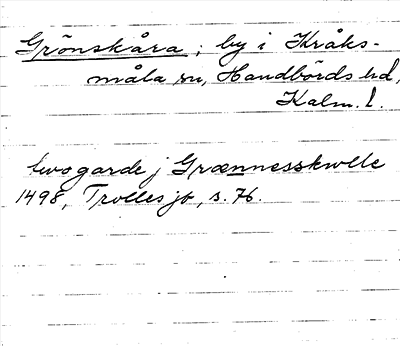 Grönskåra; by i Kråks-
måla sn, Handbörds hd,
Kalm. l.
twogarde j Grænnesskwlle
1498, Trolles jb, s. 76.